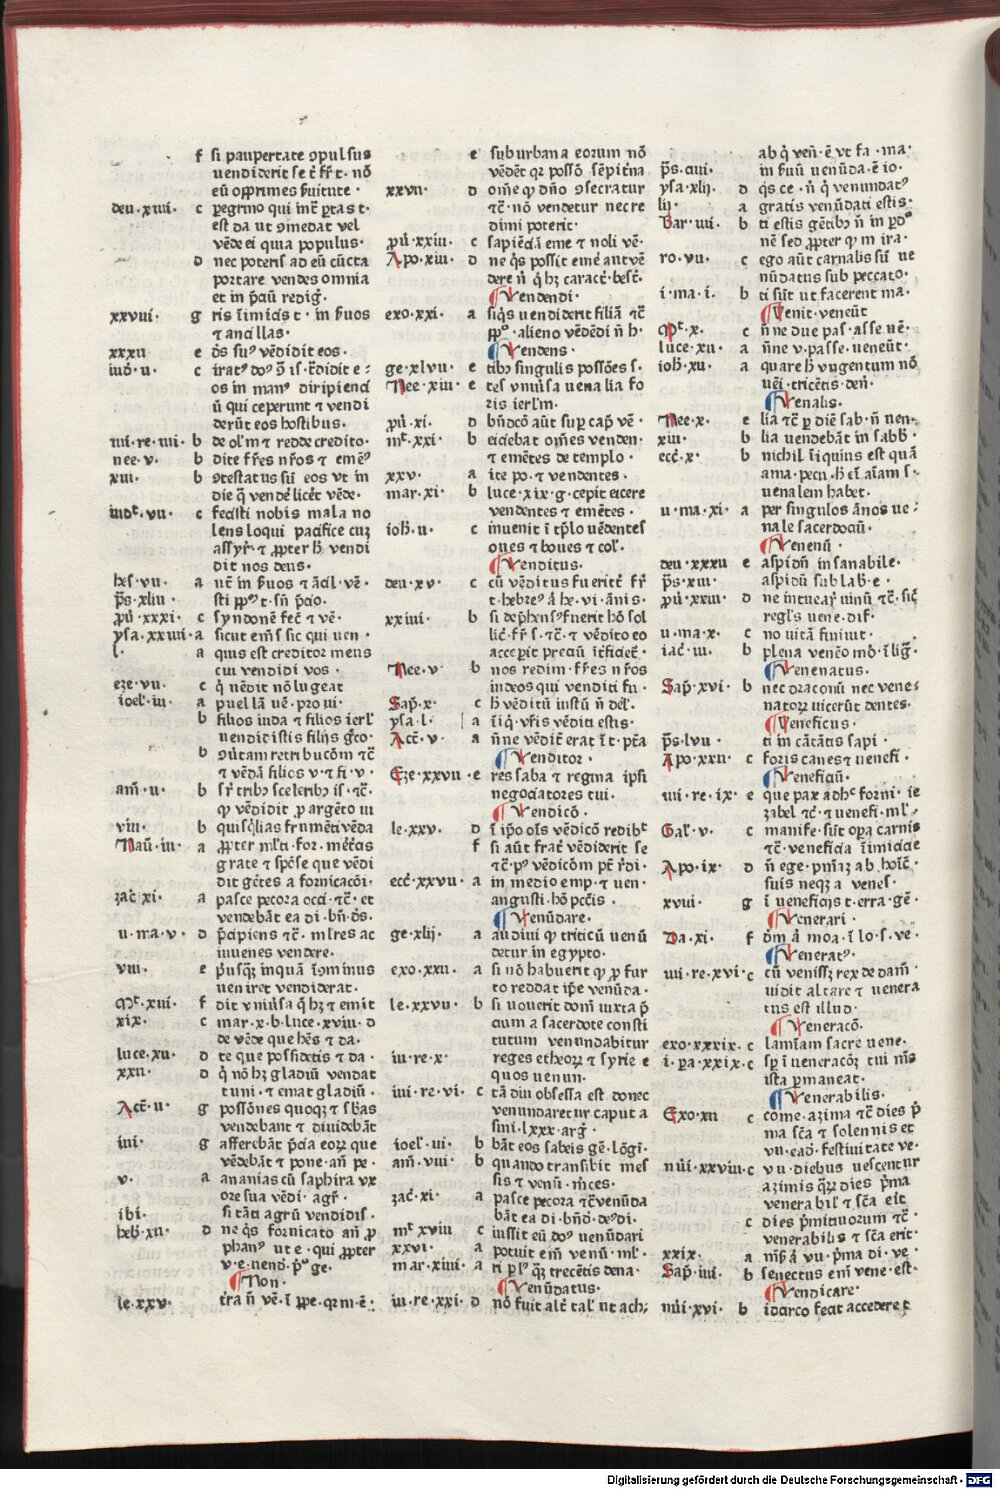 f si paupertate ꝯpulsus
uendiderit se t̄ fr̄ t· nō
eū opprimes ẜuitute ·
deu·xiiii· c peregrino qui int̄ portas t·
est da ut ꝯmedat vel
vēde ei quia populus·
d nec poteris ad eū cūcta
portare vendes omnia
et in p̄aū redig̉·
xxviii· g ris īimicis t· in ẜuos
⁊ ancillas·
xxxii e d̄s suꝰ vēdidit eos·
iud·ii· c iratꝰ doꝰ ꝯ is·t̄didit e⸗
os in manꝰ diripienci
ū qui ceperunt ⁊ vendi
derūt eos hostibus·
iiii·re·iiii· b de ol̄m ⁊ redde credito·
nee·v· b dite fr̄es nr̄os ⁊ emēꝰ
xiii· b ꝯtestatus sū eos vt in
die q̄ vendē licēt vēde·
iudt·vii· c fecisti nobis mala no
lens loqui pacifice cuꝫ
assyr̉· ⁊ ꝓpter h̄ vendi
dit nos deus·
hes·vii· a ut̄ in ẜuos ⁊ ācil·vē·
p̄s·xliii· sti ppꝰ t·sn̄ p̄cio·
ꝓū·xxxi· c syndonē fec̄ ⁊ vē·
ysa·xxiiii· a sicut em̄s sic qui uen·
l· a quis est creditor meus
cui vendidi vos·
eze·vii· c q̄ uēdit nō lugeat
ioel·iii· a puellā uē·pro ui·
b filios iuda ⁊ filios ierl̄
uendidistis filijs gr̄co·
b ꝯūtam retribucōm ⁊c̄
⁊ vēdā filios v·⁊ fi·v·
am̄·ii· b sr̄ tribꝫ sceleribꝫ is·⁊c̄·
ꝙ vēdidit ꝓ argēto iu
viii· b quisq̄lias frumēti vēda
Naū·iii· a ꝓpter ml̄ti·for·mēt̄cis
grate ⁊ sp̄ose que vēdi
dit gētes a fornicacōi·
zac̄·xi· a pasce pecora occi·⁊c̄· et
vendebāt ea di·bn̄·d̄s·
ii·ma·v· d p̄cipiens ⁊c̄· ml̄res ac
iuuenes vendere·
viii· e p̄usqꝫ inquā īominus
uen iret vendiderat·
Mt̄·xiii· f dit vniūsa q̄ hꝫ ⁊ emit
xix· c mar·x·b·luce·xviii·d
de vēde que hēs ⁊ da·
luce·xii· d te que possidetis ⁊ da·
xxii· d q̄ nō hꝫ gladiū vendat
tuni·⁊ emat gladiū·
Act̄·ii· g possōnes quoqꝫ ⁊ sb̄as
vendebant ⁊ diuidebāt
iiii· g afferebāt p̄cia eoꝝ que
vēdebāt ⁊ pone·an̄ pe·
v· a ananias cū saphira vx
ore sua vēdi·agr̄·
ibi· si tāti agrū vendidis·
heb̄·xii· d ne q̄s fornicato an̄ ꝓ
phanꝰ ut e·qui ꝓpter
v·e·uend·p̄ꝰ ge·
Non·
le·xxv· tr̄a n̄ vē·ī ꝑpe·qꝛ m·ē·
e suburbana eorum nō
vēdēt qꝛ possō sēpit̄na
xxvii· d om̄e ꝙ dn̄o ꝯsecratur
⁊c̄·nō vendetur nec re
dimi poterit·
ꝓū·xxiii· c sapiēciā eme ⁊ noli vē·
Apo·xiii· d ne q̄s possit emē aut vē
dere n̄ q̄ hꝫ caract̄·best̄·
Vendendi·
exo·xxi· a siq̄s uendiderit filiā ⁊c̄
ppꝰ·alieno vēdēdi n̄ h·
Vendens·
ge·xlvii· e tibꝫ singulis possōes s·
Nee·xiii· e tes vniūsa uenalia fo
ris ierl̄m·
ꝓū·xi· d bn̄dcō aūt suꝑ cap̄ vē·
mt̄·xxi· b eiciebat om̄es venden·
⁊ emētes de templo·
xxv· a ite po·⁊ vendentes·
mar·xi· b luce·xix·g·cepit eicere
vendentes ⁊ emētes·
ioh̄·ii· c inuenit ī tp̄lo uēdentes
oues ⁊ boues ⁊ col̄·
Venditus·
deu·xv· c cū vēditus fuerit t̄ fr̄
t·hebreꝰ ā he·vi·ānis·
xxiiii· b si dep̄hensꝰ fuerit hō sol
lic̄·fr̄ s·⁊c̄·⁊ vēdito eo
acceperit preciū īt̄ficiet̄·
Nee·v· b nos redim·fr̄es nr̄os
iudeos qui venditi fu·
Sap̄·x· c h̄ vēditū iustū n̄ del̄·
ysa·l· a īiq̄·vr̄is vēditi estis·
Act̄·v· a n̄ne vēdit̄ erat ī t·pt̄a
Venditor·
Eze·xxvii·e res saba ⁊ regina ipsi
negociatores tui·
Vendicō·
le·xxv· d ī ip̄o oīs vēdicō redibt̄
f si aūt frat̄ vēdiderit se
⁊c̄·pꝰ vēdicōm pt̄ r̄di·
ecc̄·xxvii· a in medio emp·⁊ uen·
angusti·hō pcc̄is·
Venūdare·
ge·xlij· a audiui ꝙ triticū uenū
detur in egypto·
exo·xxii· a si nō habuerit ꝙ ꝓ fur
to reddat ip̄e venūda·
le·xxvii· b si uouerit dom̄ iuxta p̄
cium a sacerdote consti
tutum venundabitur
iii·re·x· reges etheoꝝ ⁊ syrie e
quos uenun·
iiii·re·vi· c tā diu obsessa est donec
venundaretur caput a
sini·lxxx·arg̉·
ioel̄·iii· b bāt eos sabeis gē·lōgī·
am̄·viii· b quando transibit mes
sis ⁊ venū·m̄ces·
zac̄·xi· a pasce pecora ⁊c̄ venūda
bāt ea di·bn̄d·dꝰdi·
mt̄ xviii c iussit eū doꝰ uenūdari
xxvi· a potuit em̄ venū·ml̄·
mar·xiiii· a ri plꝰ qꝫ trecētis dena·
Venūdatus·
iii·re·xxi· d nō fuit alt̄ tal̄ ut ach;
ab q̄ ven̄·ē vt fa·ma·
p̄s·ciiii· in ẜuū uenūda·ē io·
ysa·xlij· d q̄s ce·n̄ q̄ venundatꝰ
lij· a gratis venūdati estis·
Bar·iiii· b ti estis gētibꝫ n̄ in ꝑdꝰ
nē sed ꝓpter ꝙ m ira·
ro·vii· c ego aūt carnalis sū ue
nūdatus sub peccato·
i·ma·i· b ti sūt ut facerent ma·
Uenit·veneūt
Mt̄·x· c n̄ne due pas·asse uē·
luce·xii· a n̄ne v·passe·ueneūt·
ioh̄·xii· a quare h̄ vngentum nō
uēi·tricētis den̄·
Venalis·
Nee·x· e lia ⁊c̄ ꝑ diē sab·n̄ uen·
xiii· b lia uendebāt in sabb̄·
ecc̄·x· b nichil īiquius est quā
ama·pecu·h̄ eī aīam s·
uenalem habet·
ii·ma·xi· a per singulos ānos ue⸗
nale sacerdociū·
Venenū·
deu·xxxii e aspidū insanabile·
p̄s·xiii· aspidū sub lab·e·
ꝓū·xxiii· d ne intuear̄ uinū ⁊c̄·sic̄
regl̄s uene·dif·
ii·ma·x· c no uitā finiuit·
iac̄·iii· b plena venēo mō·īlig̉·
Venenatus·
Sap̄·xvi· b nec draconū nec vene⸗
natoꝝ uicerūt dentes·
Veneficus·
p̄s·lvii· ti in cātātis sapi·
Apo·xxii· c foris canes ⁊ uenefi·
Veneficiū·
iiii·re·ix· e que pax adhꝰ forni·ie
zabel ⁊c̄·⁊ uenefi·ml̄·
Gal̄·v· c manife·sūt opa carnis
⁊c̄·veneficia īimicicie
Apo·ix· d n̄ ege·pn̄iaꝫ ab hoīc̄·
suis neqꝫ a venef·
xviii· g ī ueneficijs t·erra·gē·
Venerari·
Da·xi· f dm̄ ā moa·ī lo·s·ve·
Veneratꝰ·
iiii·re·xvi·c cū venissꝫ rex de dam̄·
uidit altare ⁊ uenera
tus est illud·
Veneracō·
exo·xxxix·c lamīam sacre uene·
i·pa·xxix·c sp̄ ī ueneracōꝫ tui mīs
ista permaneat·
Venerabilis·
Exo·xii c come·azima ⁊c̄ dies p̄
ma sc̄a ⁊ solennis et
vii·ead̄·festiuitate ve·
nūi·xxviii·c vii·diebus uescentur
azimis qꝝ dies p̄ma
venerabil̄ ⁊ sc̄a eit
c dies p̄mitiuorum ⁊c̄·
venerabilis ⁊ sc̄a erit·
xxix· a mīs̄ ā vii·p̄ma di·ve·
Sap̄·iiii· b senectus em̄ vene·est·
Vendicare·
nūi·xvi· b idcirco feciat accedere t
Digitalisierung gefördert durch die Deutsche Forschungsgemeinschaft - DFG